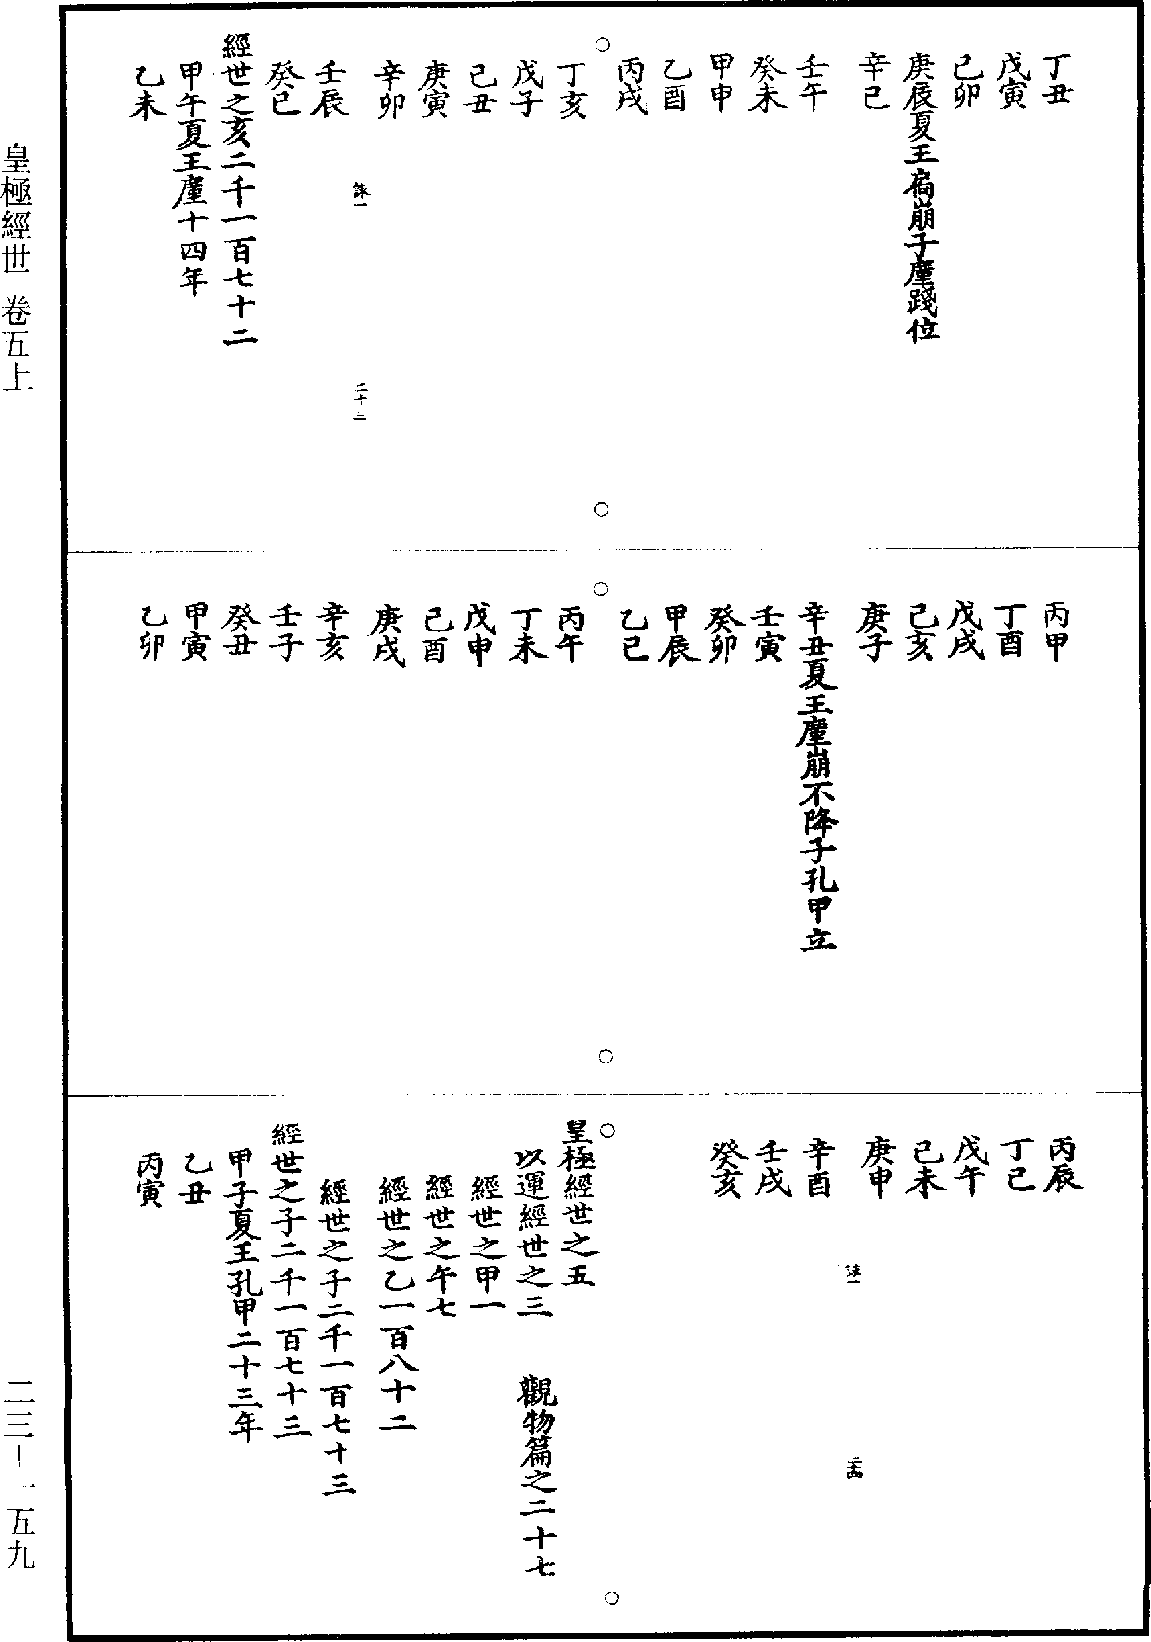 丁丑
戊寅
己卯
庚辰夏王扃崩子廑踐位
辛巳
壬午
癸未
甲申
乙酉
丙戌
丁亥
戊子
己丑
庚寅
辛卯
壬辰
癸巳
經世之亥二千一百七十二
甲午夏王廑十四年
乙未
丙甲
丁酉
戊戌
己亥
庚子
辛丑夏王廑崩不降子孔甲立
壬寅
癸卯
甲辰
乙巳
丙午
丁未
戊申
己酉
庚戌
辛亥
壬子
癸丑
甲寅
乙卯
丙辰
丁巳
戊午
己未
庚申
辛酉
壬戌
癸亥
皇極經世之五
以運經世之三 觀物篇之二十七
經世之甲一
經世之午七
經世之乙一百八十二
經世之子二千一百七十三
經世之子二千一百七十三
甲子夏王孔甲二十三年
乙丑
丙寅
皇極經世 卷五上
二三-一五九